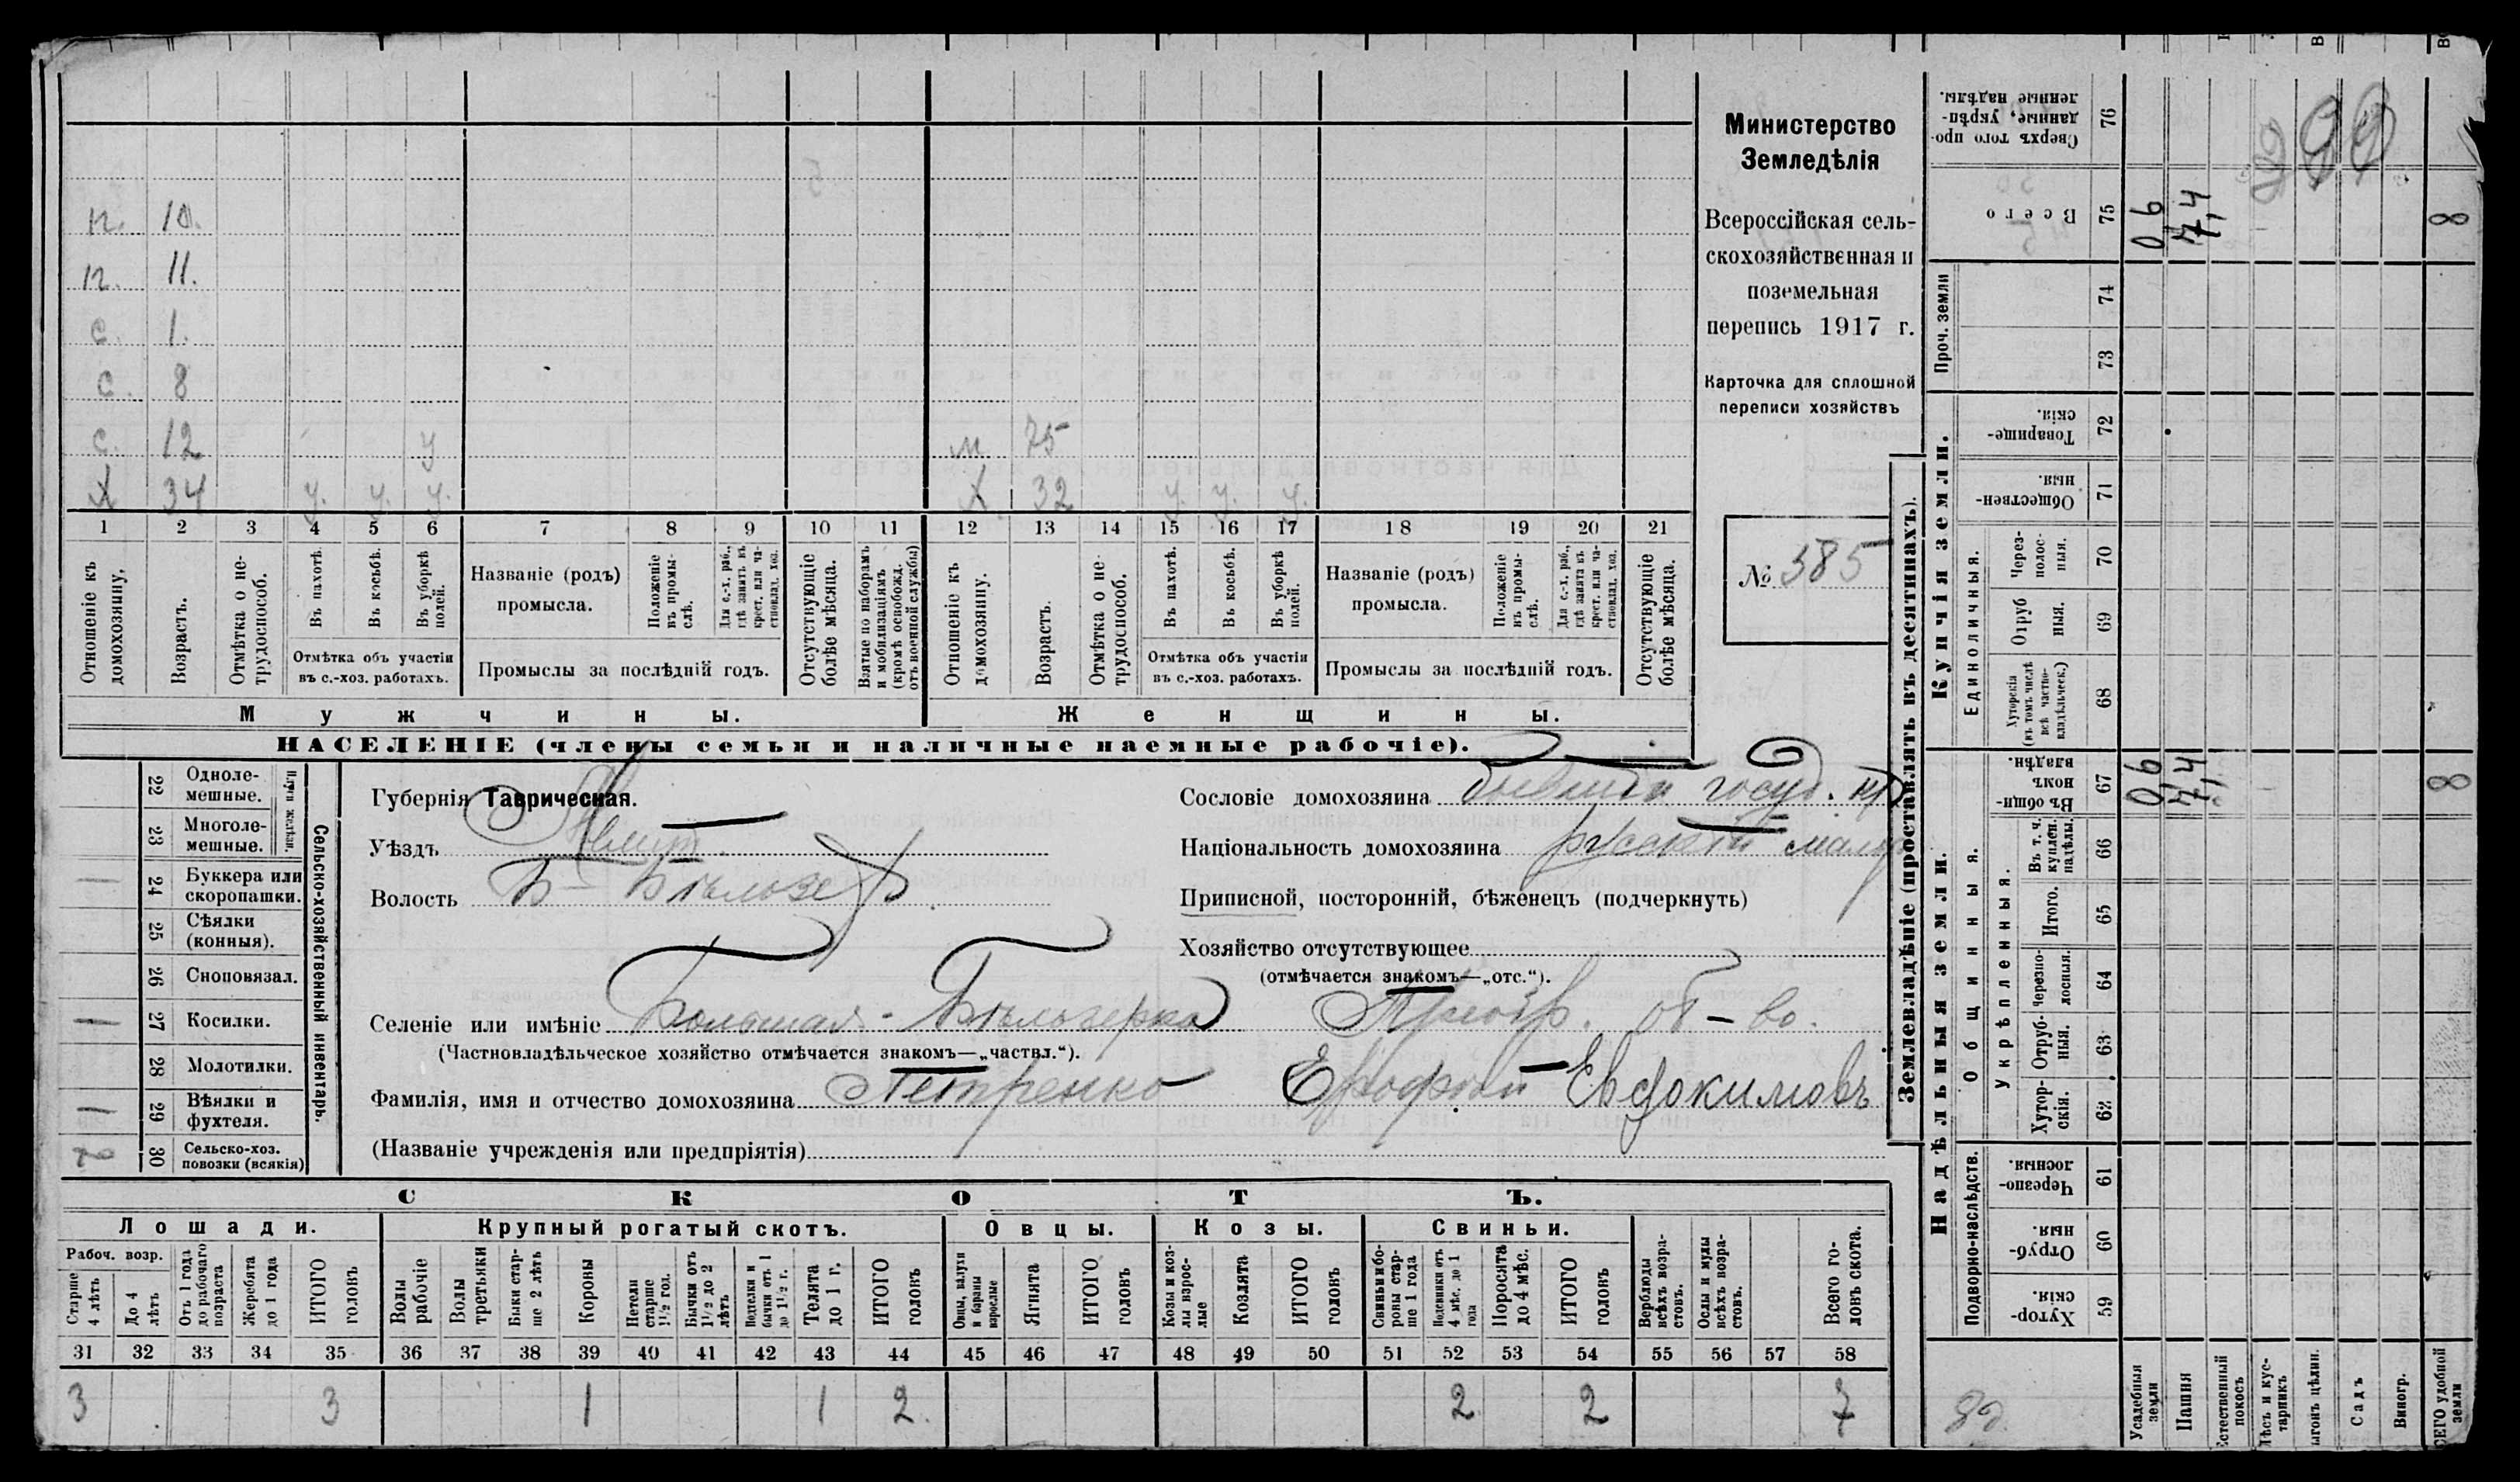 п. 10.
п. 11.
с. 1.
с. 8
с. 12 у м. 75
Х 34 у. у. у. Х. 32 у. у. у.
1 2 3 4 5 6 7 8 9 10 11 12 13 14 15 16 17 18 19 20 21
Отношеніе къ домохозяину.
Возрастъ.
Отмѣтка о нетрудоспособ.
Въ пахотѣ.
Въ косьбѣ.
Въ уборкѣ полей.
Отмѣтка объ участіи
въ с.-хоз. работахъ.
Названіе (родъ)
промысла.
Положеніе въ промыслѣ.
Для с.-х. раб., гдѣ занятъ въ крест. или частновлад. хоз.
Промыслы за послѣдній годъ.
Отсутствующіе болѣе мѣсяца.
Взятые по наборамъ и мобилизаціямъ (кромѣ освобожд. отъ военной службы)
Отношеніе къ домохозяину.
Возрастъ.
Отмѣтка о нетрудоспособ.
Въ пахотѣ.
Въ косьбѣ.
Въ уборкѣ полей.
Отмѣтка объ участіи
въ с.-хоз. работахъ.
Названіе (родъ)
промысла.
Положеніе въ промыслѣ.
Для с.-х. раб., гдѣ занята въ крест. или частновлад. хоз.
Промыслы за послѣдній годъ.
Отсутствующіе болѣе мѣсяца.
Мужчины.
Женщины.
НАСЕЛЕНІЕ (члены семьи и наличные наемные рабочіе).
Министерство
Земледѣлія
Всероссійская сель-
скохозяйственная и
поземельная
перепись 1917 г.
Карточка для сплошной
переписи хозяйствъ
№ 385
Сельско-хозяйственный инвентарь.
Плуги желѣзн.
22 Одноле-
мешные.
23 Многоле-
мешные.
24 Буккера или
скоропашки.
25 Сѣялки
(конныя).
26 Сноповязал.
27 Косилки.
28 Молотилки.
29 Вѣялки и
фухтеля.
30 Сельско-хоз.
повозки (всякія)
Губернія Таврическая.
Уѣздъ Мелит.
Волость Б- Бѣлозер
Селеніе или имѣніе Большая-Бѣлозерка Преобр. об-во.
(Частновладѣльческое хозяйство отмѣчается знакомъ—„частвл.“).
Фамилія, имя и отчество домохозяина Петренко Ерофей Евдокимовъ
(Названіе учрежденія или предпріятія)
Сословіе домохозяина бывшій госуд. кр
Національность домохозяина русскій малор
Приписной, посторонній, бѣженецъ (подчеркнуть)
Хозяйство отсутствующее
(отмѣчается знакомъ—„отс.“).
СКОТЪ.
Лошади. Крупный рогатый скотъ. Овцы. Козы. Свиньи.
Рабоч. возр.
Старше 4 лѣтъ
До 4 лѣтъ
Отъ 1 года до рабочаго возраста
Жеребята до 1 года
ИТОГО головъ
Волы рабочіе
Волы третьяки
Быки старше 2 лѣтъ
Коровы
Нетели старше 1½ год.
Бычки отъ 1½ до 2 лѣтъ
Подтелки и бычки отъ 1 до 1½ г.
Телята до 1 г.
ИТОГО головъ
Овцы, валухи и бараны взрослые
Ягнята
ИТОГО головъ
Козы и козлы взрослые
Козлята
ИТОГО головъ
Свиньи и боровы старше 1 года
Подсвинки отъ 4 мѣс. до 1 года
Поросята до 4 мѣс.
ИТОГО головъ
Верблюды всѣхъ возрастовъ.
Ослы и мулы всѣхъ возрастовъ.
Всего головъ скота.
31 32 33 34 35 36 37 38 39 40 41 42 43 44 45 46 47 48 49 50 51 52 53 54 55 56 57 58
3 3 1 1 2. 2 2 7
Землевладѣніе (проставлять въ десятинахъ).
Сверхъ того проданные, укрѣпленные надѣлы. 76
Всего 75 0,6 7,4 8
Проч. земли
74
73
Купчія земли.
Товарищескія. 72
Общественныя. 71
Единоличныя.
Черезполосныя. 70
Отрубныя. 69
Хуторскія (въ томъ числѣ всѣ частновладѣльческ.) 68
Надѣльныя земли.
Общинныя.
Въ общиномъ владѣн. 67 0,6 7,4 8
Укрѣпленныя.
Въ т. ч. куплен. надѣлы. 66
Итого. 65
Черезполосныя. 64
Отрубныя. 63
Хуторскія. 62
Подворно-наслѣдств.
Черезполосныя. 61
Отрубныя. 60
Хуторскія. 59
Усадебныя земли
Пашня
Естественный покосъ
Лѣсъ и кустарникъ
Выгонъ цѣлин.
Садъ
Виногр.
ВСЕГО удобной земли